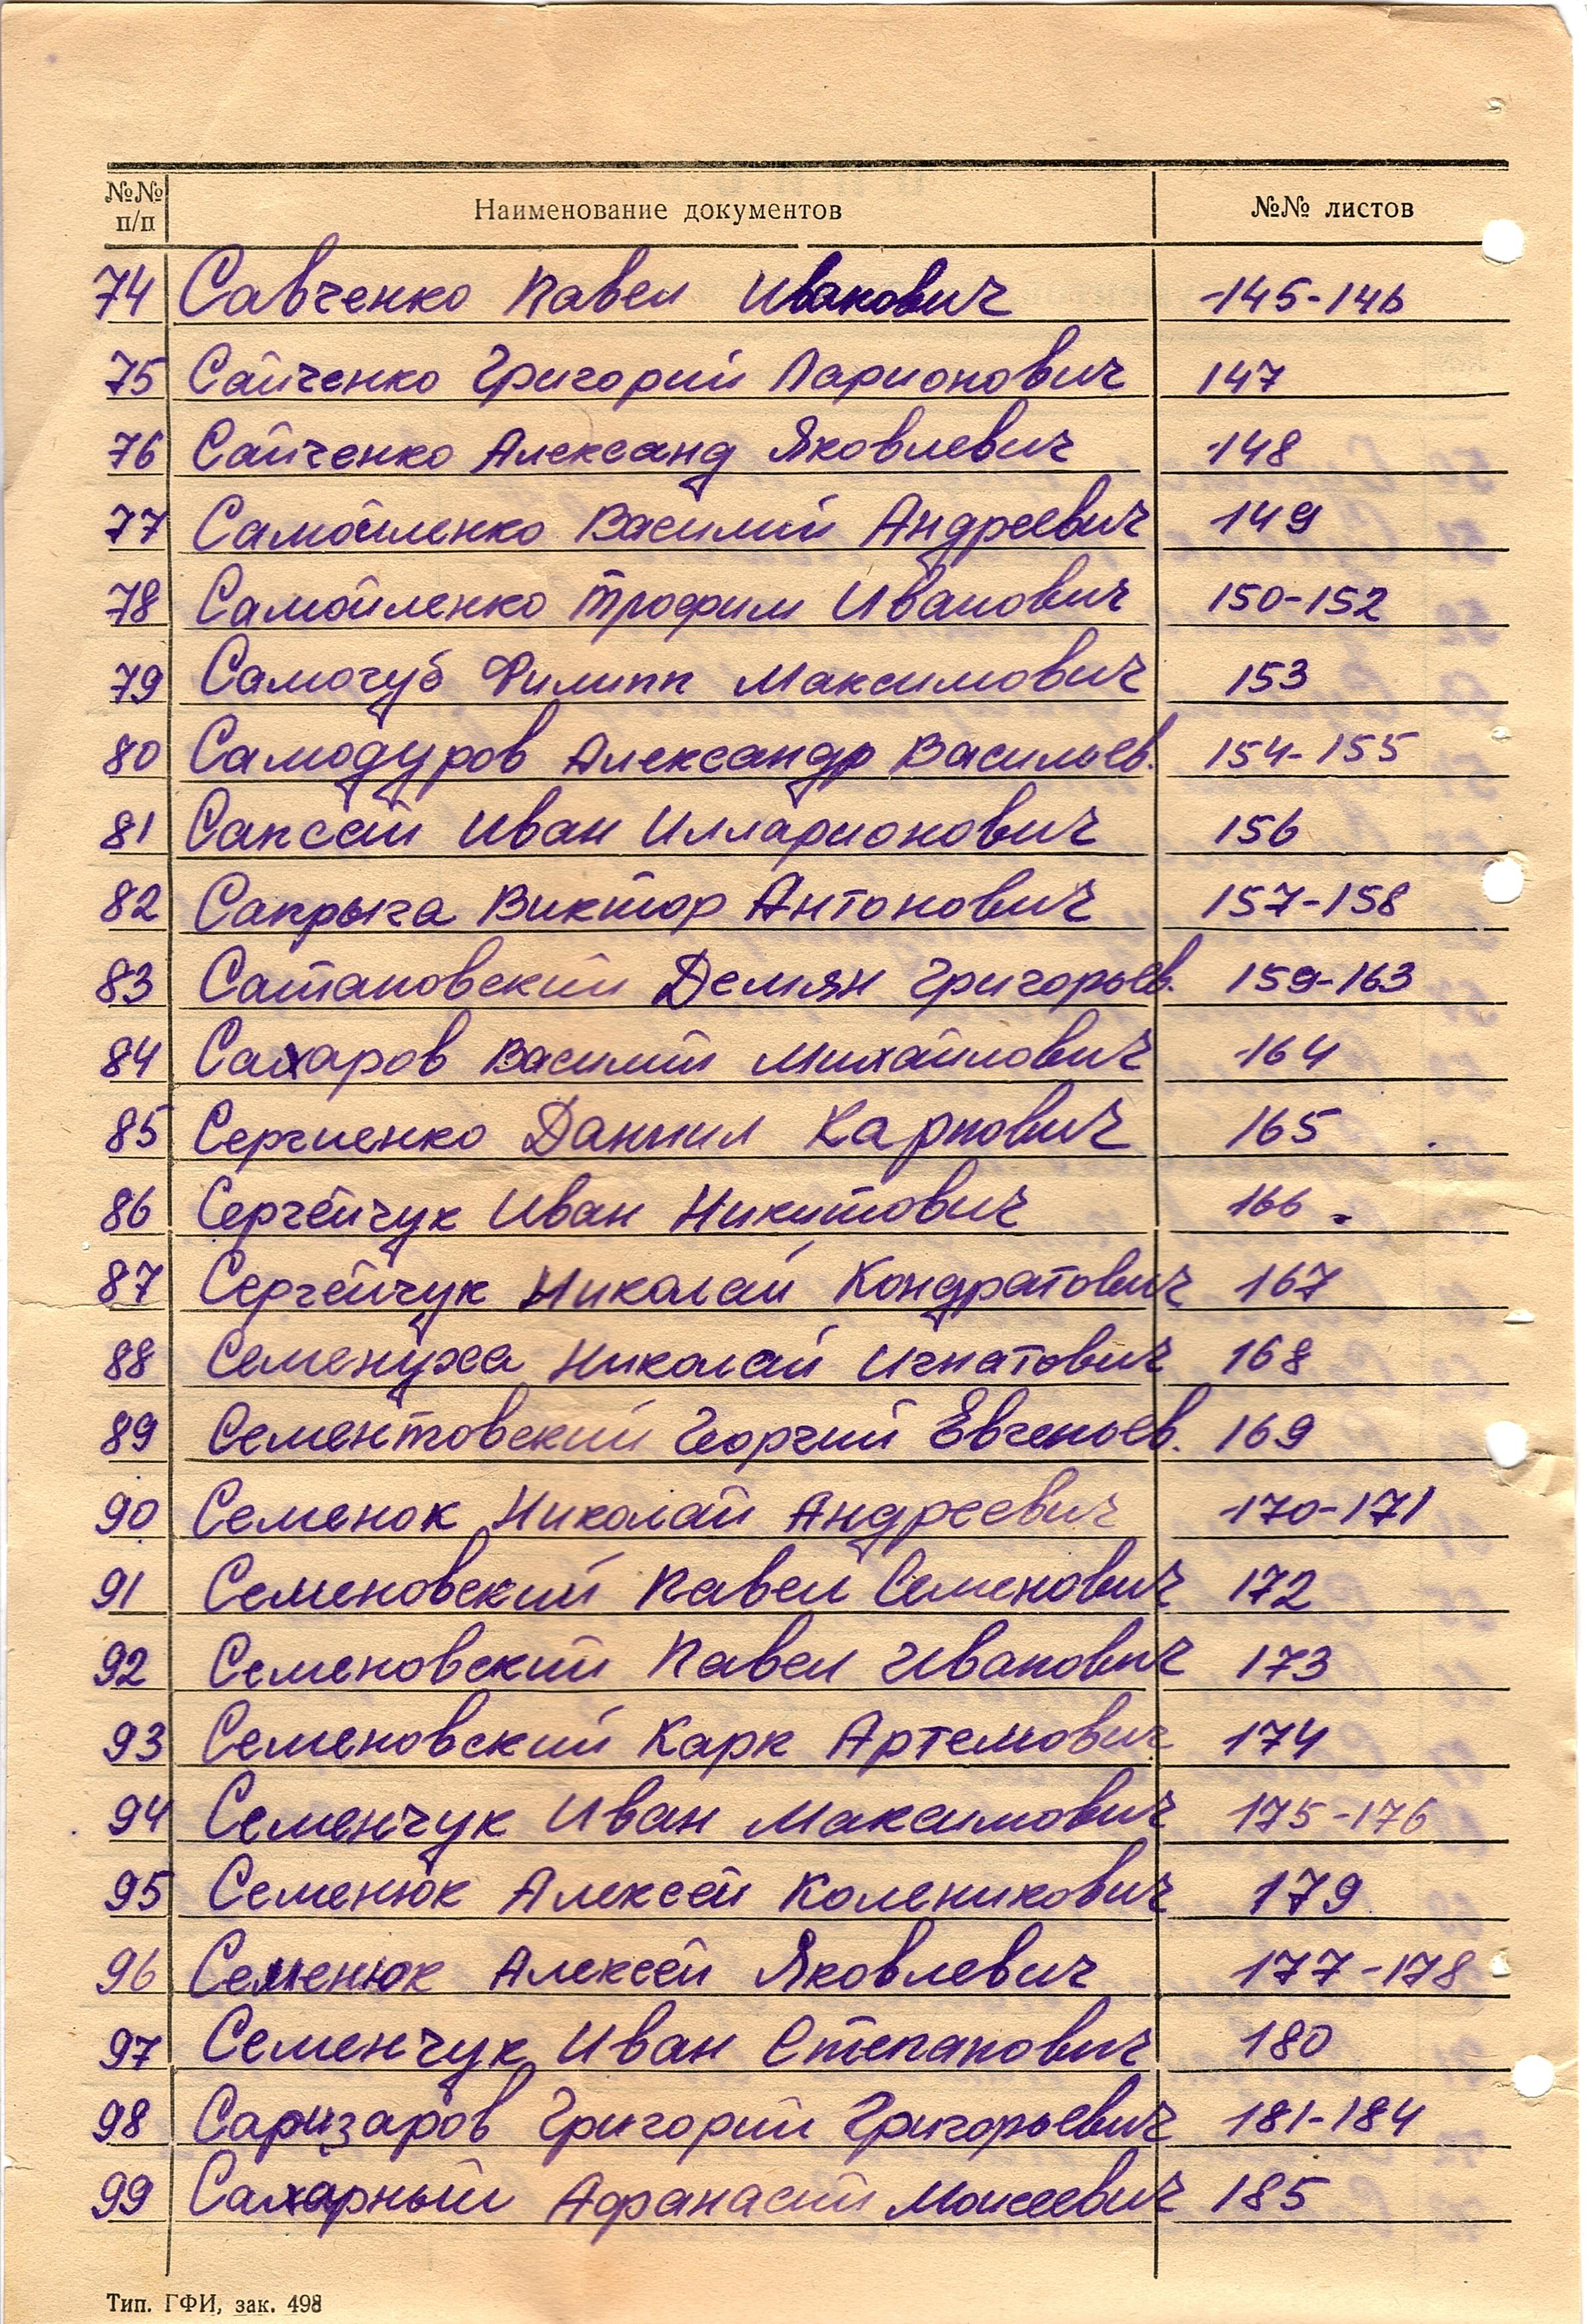 №№ п/п Наименование документов №№ листов
74 Савченко Павел Иванович 145-146
75 Сайченко Григорий Ларионович 147
76 Сайченко Александ Яковлевич 148
77 Самойленко Василий Андреевич 149
78 Самойленко Трофим Иванович 150-152
79 Самочуб Филипп Максимович 153
80 Самодуров Александр Васильев. 154-155
81 Саксай Иван Илларионович 156
82 Сапрыга Виктор Антонович 157-158
83 Сатановский Демян Григорьев. 159-163
84 Сахаров Василий Михайлович 164
85 Сергиенко Даниил Карпович 165
86 Сергейчук Иван Никитович 166
87 Сергейчук Николай Кондратович 167
88 Семенуха Николай Игнатович 168
89 Сементовский Георгий Евгеньев. 169
90 Семенок Николай Андреевич 170-171
91 Семеновский Павел Семенович 172
92 Семеновский Павел Иванович 173
93 Семеновский Карк Артемович 174
94 Семенчук Иван Максимович 175-176
95 Семенюк Алексей Коленикович 179
96 Семенюк Алексей Яковлевич 177-178
97 Семенчук Иван Степанович 180
98 Саризаров Григорий Григорьевич 181-184
99 Сахарный Афанасий Моисеевич 185
Тип. ГФИ, зак. 498